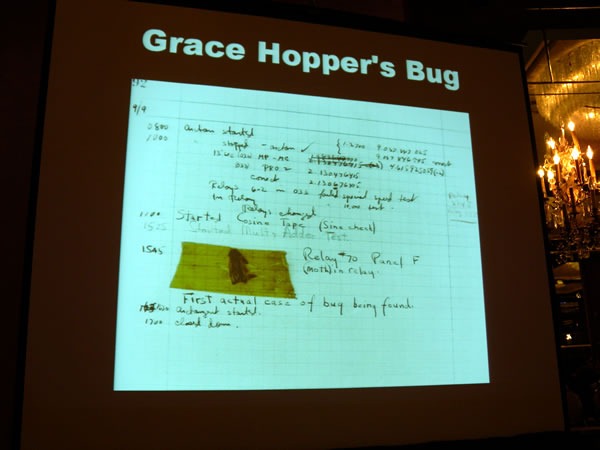 Grace Hopper's Bug
9/9
0800 Antan started
1000 " stopped - antan ✓ { 1.2700 9.037 847 025
13"uc (032) MP - MC
033 PRO 2 2.130476415
correct 2.130676415
Relays 6-2 in 033 failed special speed test
in relay " 10.00 test.
Relays changed
1100 Started Cosine Tape (Sine check)
1525 Started Mult+Adder Test.
1545 Relay #70 Panel F
(moth) in relay.
First actual case of bug being found.
antangent started.
1700 closed down.